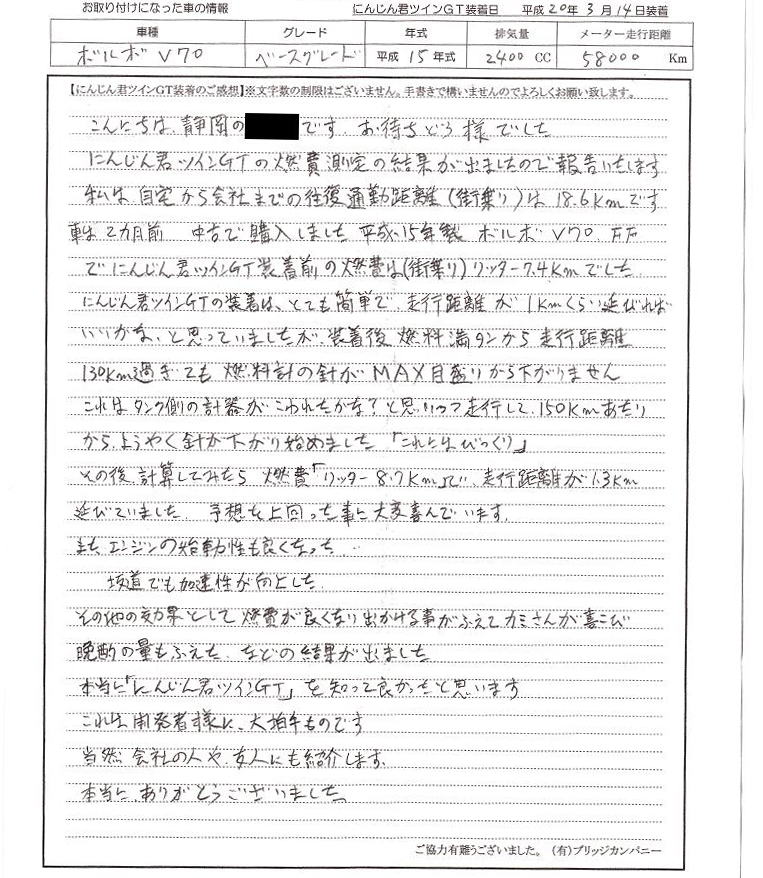 お取り付けになった車の情報 にんじん君ツインGT装着日 平成20年3月14日装着
車種 グレード 年式 排気量 メーター走行距離
ボルボV70 ベースグレード 平成 15年式 2400 CC 58000 Km
【にんじん君ツインGT装着のご感想】※文字数の制限はございません。手書きで構いませんのでよろしくお願い致します。
こんにちは、静岡の です お待ちどう様でした
にんじん君ツインGTの燃費測定の結果が出ましたので報告いたします
私は自宅から会社までの往復通勤距離(街乗り)は18.6Kmです
車は2カ月前 中古で購入しました 平成15年製 ボルボV70、FF
でにんじん君ツインGT装着前の燃費は(街乗り)リッター7.4Kmでした
にんじん君ツインGTの装着は、とても簡単で、走行距離が1Kmくらい延びれば
いいかな、と思っていましたが、装着後 燃料満タンから走行距離
130Km過ぎても 燃料計の針がMAX目盛りから下がりません
これはタンク側の計器がこわれたかな?と思いつつ走行して、150Kmあたり
から、ようやく針が下がり始めました 「これにはびっくり」
その後、計算してみたら 燃費「リッター8.7Km」で、走行距離が1.3Km
延びていました 予想を上回った事に大変喜んでいます。
また、エンジンの始動性も良くなった
坂道でも加速性が向上した
その他の効果として燃費が良くなり出かける事がふえてカミさんが喜こび
晩酌の量もふえた、などの結果が出ました
本当に「にんじん君ツインGT」を知って良かったと思います
これは開発者様に、大拍手ものです
当然 会社の人や、友人にも紹介します。
本当に、ありがとうございました。
ご協力有難うございました。 (有)ブリッジカンパニー